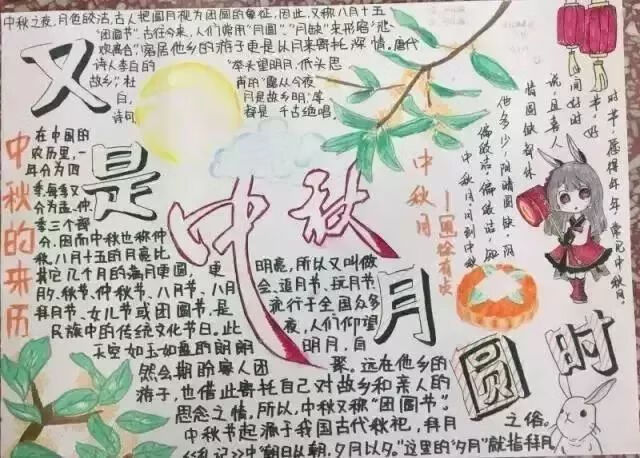 中秋之夜,月色皎洁,古人把圆月视为团圆的象征,因此,又称八月十五
"团圆节"。古往今来,人们常用"月圆""月缺"来形容"悲
欢离合",客居他乡的游子更是以月来寄托深情。唐代
诗人李白的 "举头望明月,低头思
故乡",杜 甫的"露从今夜
白, 月是故乡明"等
诗句 都是 千古绝唱。
又是中秋月圆时
中秋的来历
在中国的
农历里,一
年分为四
季,每季又
分为孟、仲、
季三个部
分,因而中秋也称仲
秋。八月十五的月亮比
其它几个月的满月更圆, 更 明亮,所以又叫做
月夕、秋节、仲秋节、八月节、八月 会、追月节、玩月节、
拜月节、女儿节或团圆节,是 流行于全国众多
民族中的传统文化节日。此 夜,人们仰望
天空如玉如盘的朗朗 明月,自
然会期盼家人团 聚。远在他乡的
游子,也借此寄托自己对故乡和亲人的
思念之情。所以,中秋又称"团圆节"。
中秋节起源于我国古代秋祀、拜月 之俗。
《礼记》中"朝日以朝,夕月以夕。"这里的"夕月"就指拜月
中秋月
徐有贞
中秋月。月到中秋
偏皎洁。偏皎洁,知
他多少,阴晴圆缺。阴
晴圆缺都休
说,且喜人
间好时
节。好
时节,愿得年年,常见中秋月。